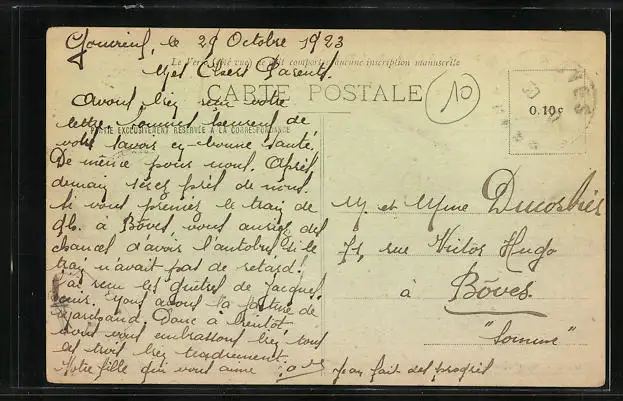 le 29 Octobre 1923
Le Verso côté vue ne doit comporter aucune inscription manuscrite
Mes Chers Parents.
CARTE POSTALE
10
0.10c
Avons bien reçu votre
lettre, sommes heureux de
PARTIE EXCLUSIVEMENT RÉSERVÉE A LA CORRESPONDANCE
vous savoir en bonne santé.
De même pour nous. Après
demain serez près de nous.
Si vous prenez le train de
9h. à Bôves, vous auriez des
chances d'avoir l'autobus si le
train n'avait pas de retard!
J'ai reçu les guêtres de Jacques,
nous avons la facture de
Donc à bientôt,
nous vous embrassons bien tous
les trois bien tendrement.
Votre fille qui vous aime
Jean fait des progrès
M. et Mme
71, rue Victor Hugo
à Bôves.
"Somme"